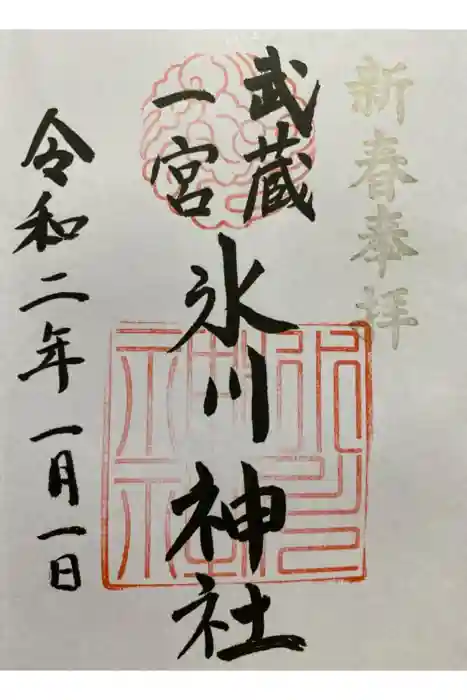 新春奉拝
武蔵
一宮
氷川神社
令和二年一月一日
氷川神社